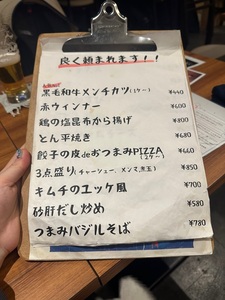 良く頼まれます！！
黒毛和牛メンチカツ(1ケ〜) ¥440
赤ウィンナー ¥600
鶏の塩昆布から揚げ ¥800
とん平焼き ¥680
餃子の皮deおつまみPIZZA(2ケ〜) ¥660
3点盛り(チャーシュー、メンマ、煮玉) ¥850
キムチのユッケ風 ¥700
砂肝だし炒め ¥580
つまみバジルそば ¥780